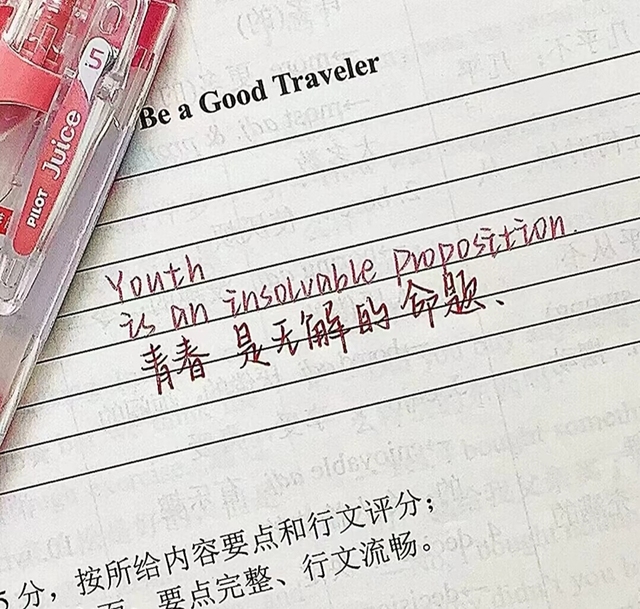 .5
PILOT Juice
Be a Good Traveler
Youth
is an insolvable proposition.
青春 是无解的 命题、
5分，按所给内容要点和行文评分；
要点完整、行文流畅。